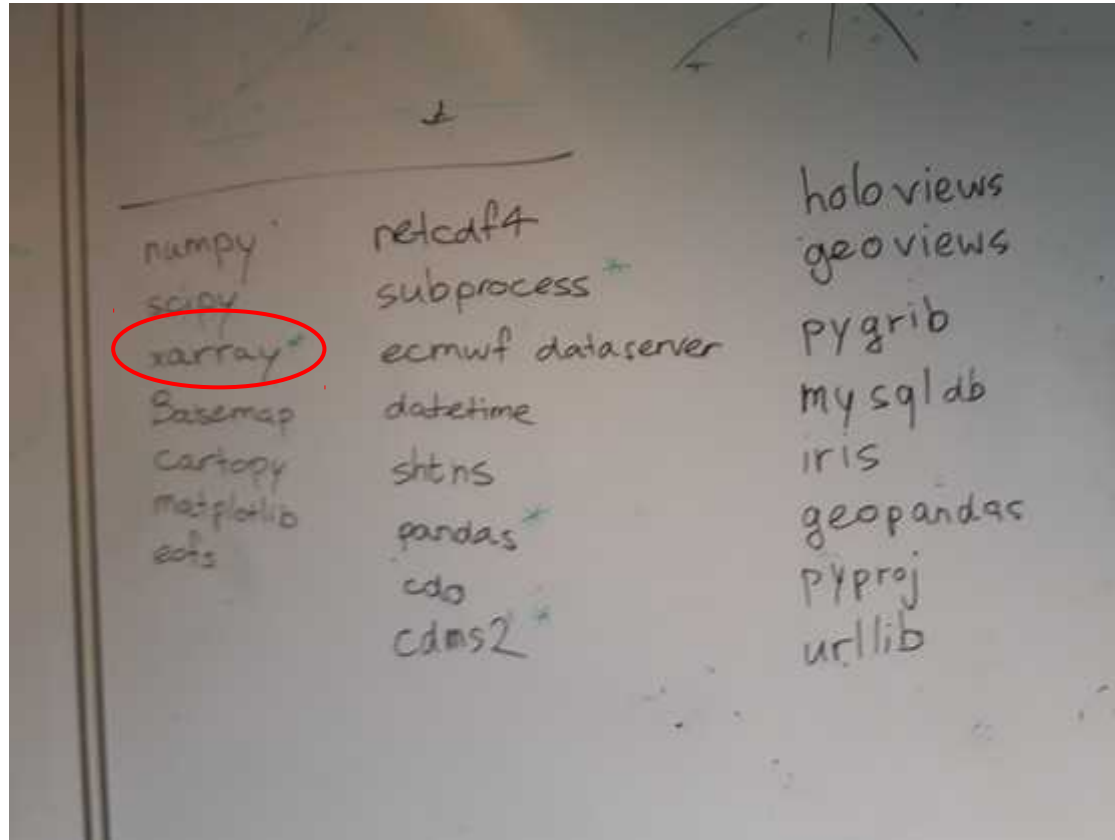 numpy
scipy
xarray*
Basemap
cartopy
matplotlib
eofs
netcdf4
subprocess*
ecmwf dataserver
datetime
shtns
pandas*
cdo
cdms2*
holoviews
geoviews
pygrib
mysqldb
iris
geopandas
pyproj
urllib